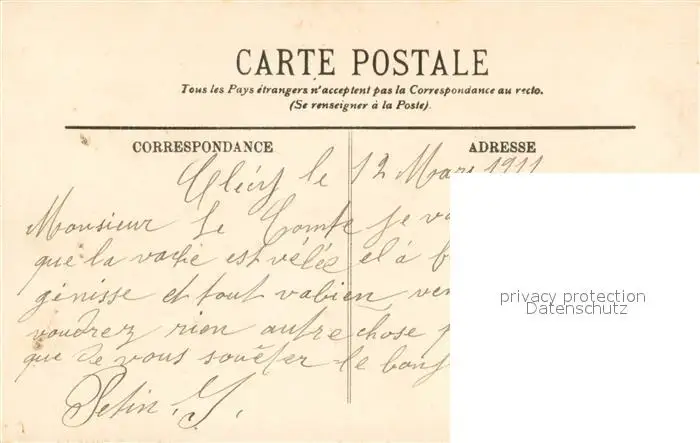 CARTE POSTALE
Tous les Pays étrangers n'acceptent pas la Correspondance au recto.
(Se renseigner à la Poste).
CORRESPONDANCE
ADRESSE
Clécy le 12 Mars 1911
Monsieur Le Comte je
que la vache est vélée et à
génisse et tout vabien
voudrez rien autre chose
que de vous souéter le
Petin. J.
privacy protection
Datenschutz